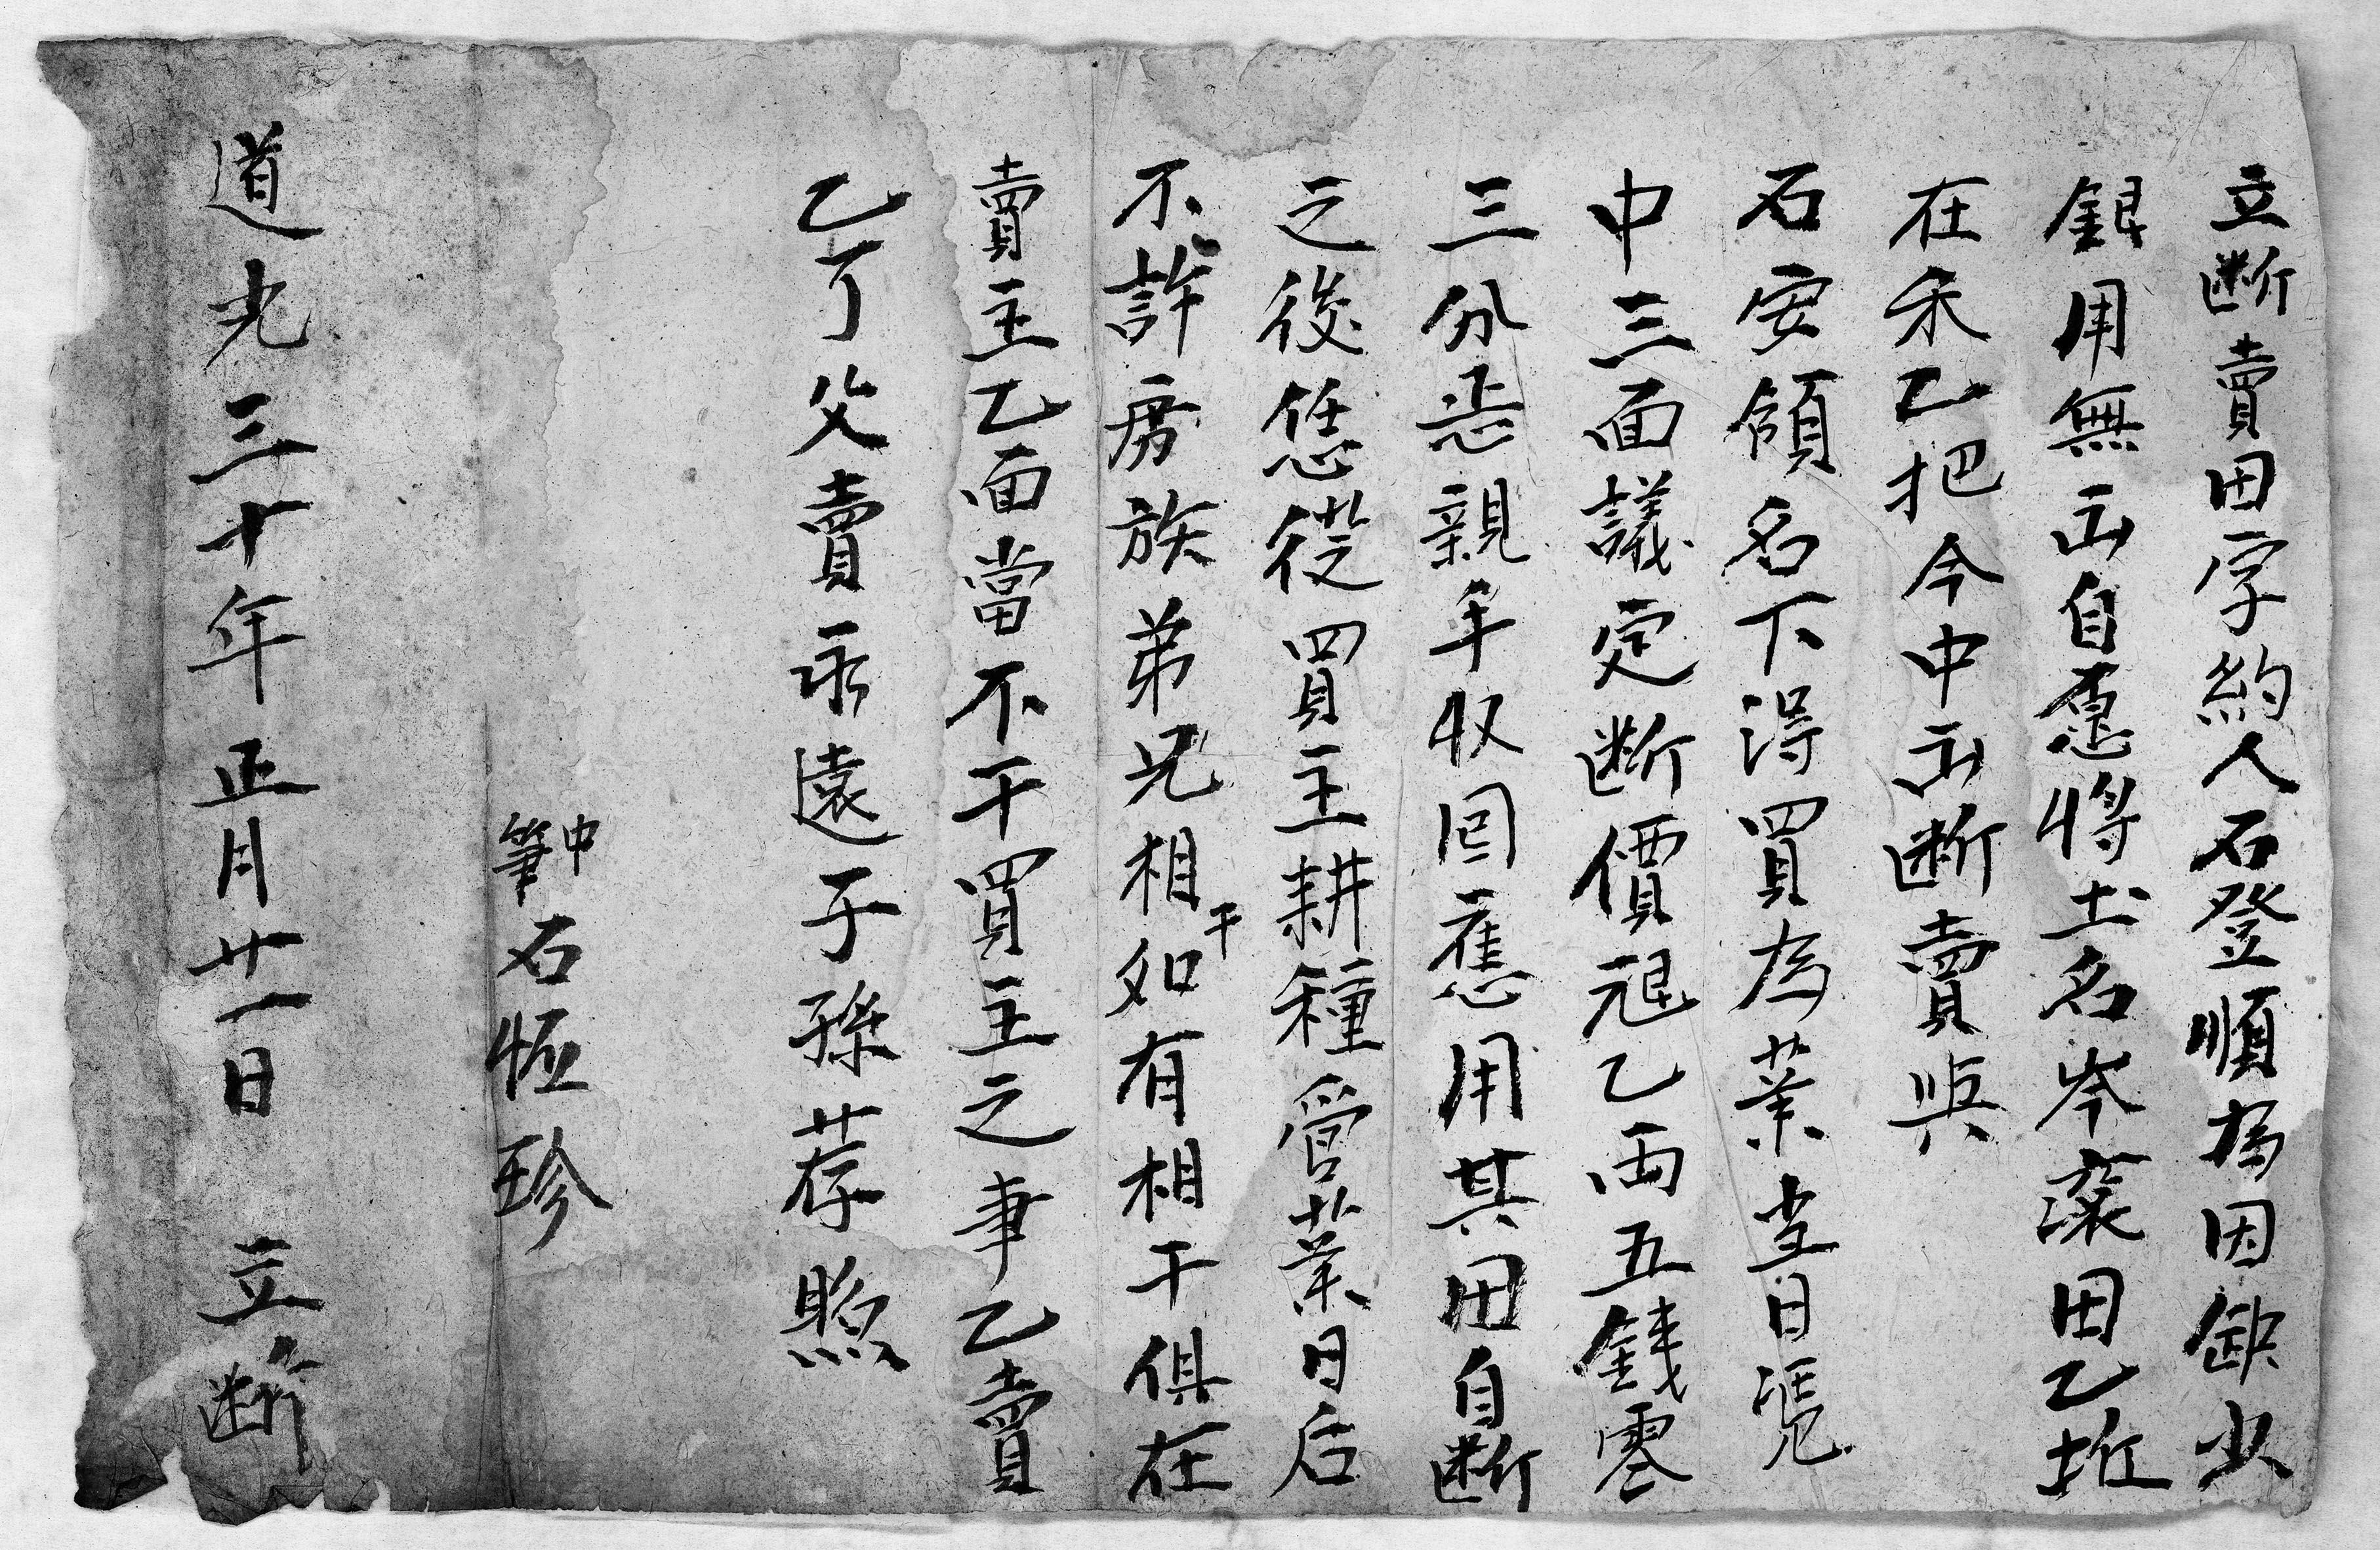 立断賣田字約人石登順為因缺少
銀用無出自愿将土名岑滾田乙坵
在禾乙把今中出断賣與
石安領名下淂買為業當日凴
中三面議定断價冠乙両五錢零
三分㤪親手收囬應用其田自断
之後恁從買主耕種管業日后
不許房族弟兄相干如有相干俱在
賣主乙面當不干買主之事乙賣
乙了父賣永遠子孫存照
中筆石恒珍
道光三十年正月廿一日 立断